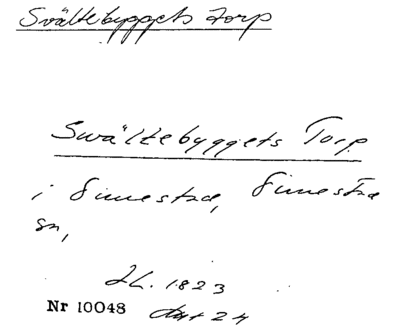 Svältebyggets torp
Swältebyggets Torp.
i Simestad, Simestad
sn,
JL. 1823
Nr 10048 24